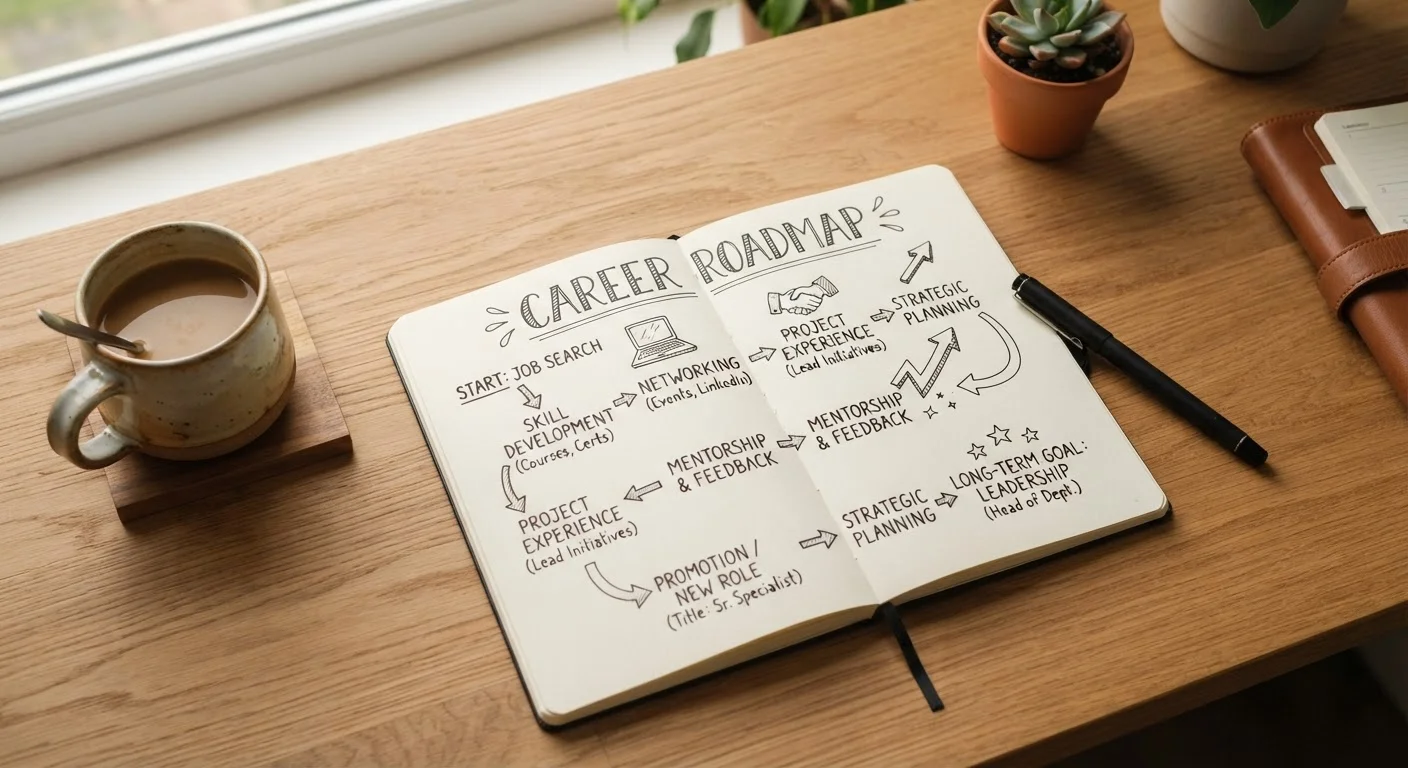 CAREER ROADMAP
START: JOB SEARCH
SKILL
DEVELOPMENT
(Courses, Certs)
NETWORKING
(Events, LinkedIn)
MENTORSHIP
& FEEDBACK
PROJECT
EXPERIENCE
(Lead Initiatives)
PROMOTION /
NEW ROLE
(Title: Sr. Specialist)
PROJECT
EXPERIENCE
(Lead Initiatives)
STRATEGIC
PLANNING
MENTORSHIP
& FEEDBACK
STRATEGIC
PLANNING
LONG-TERM GOAL:
LEADERSHIP
(Head of Dept.)